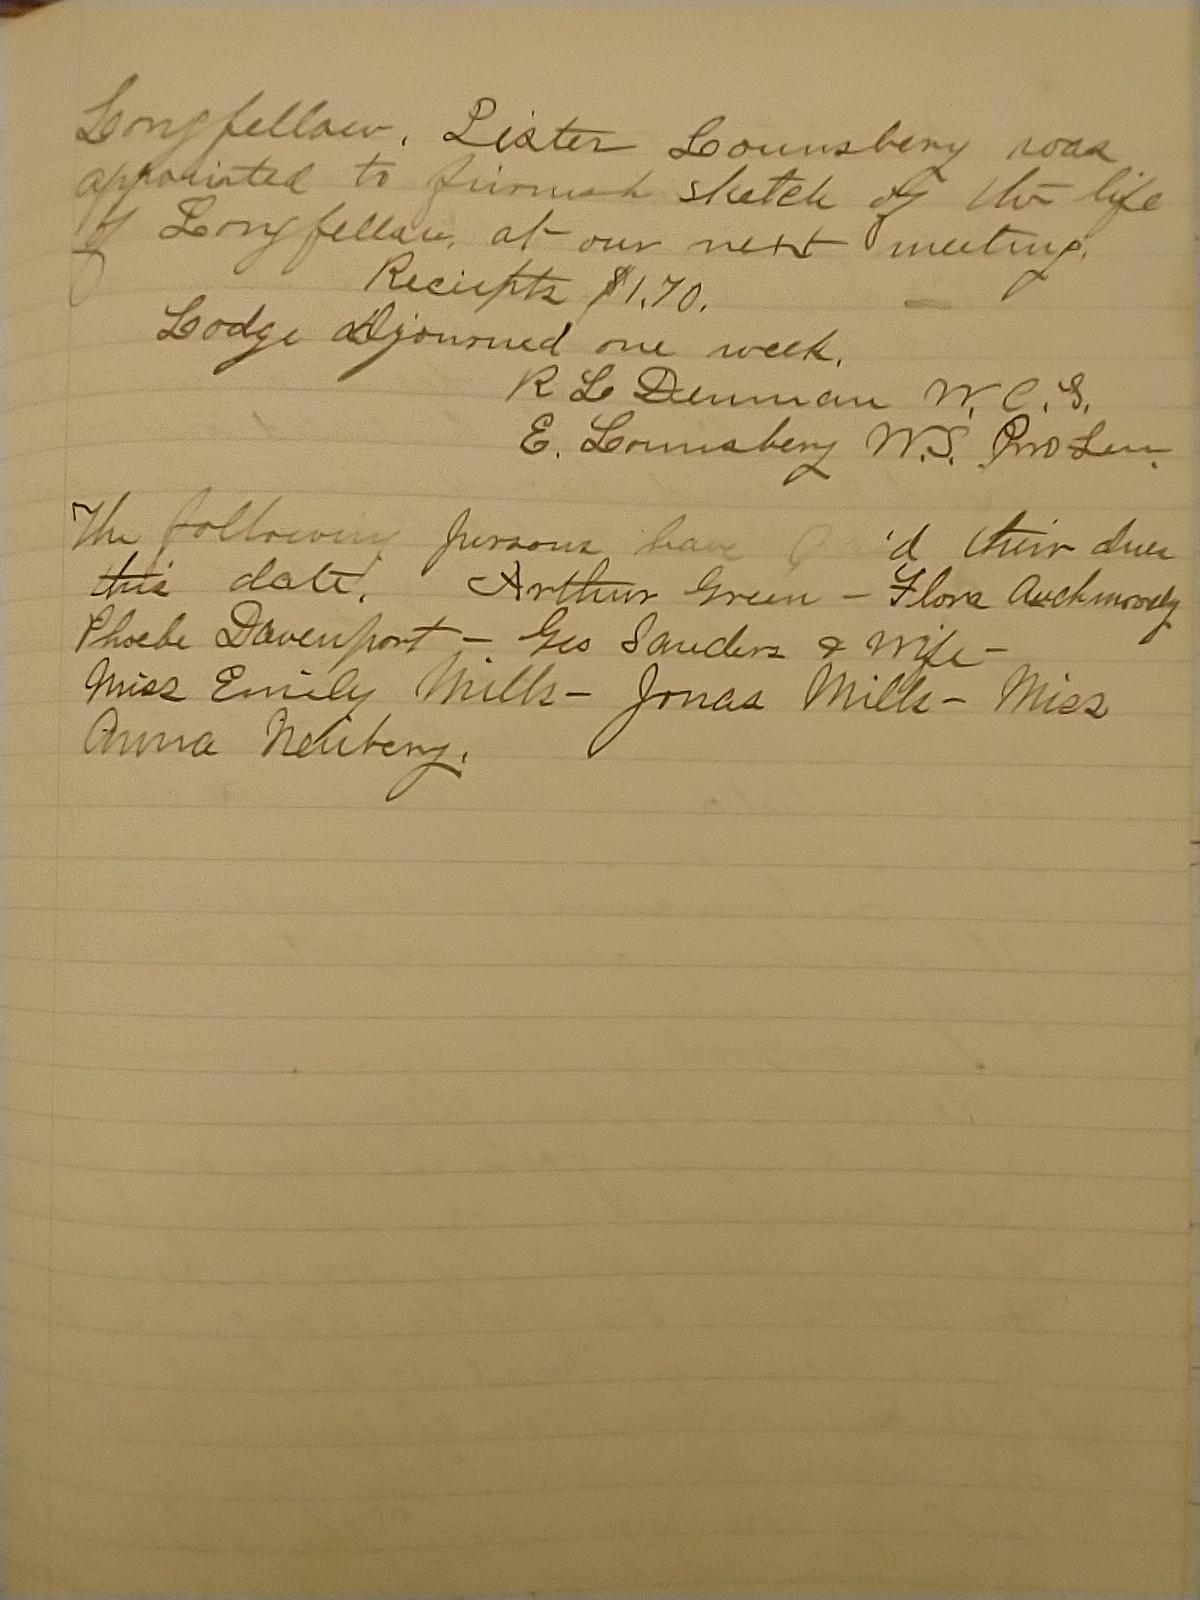 Longfellow. Sister Lounsbery was
appointed to furnish sketch of the life
of Longfellow, at our next meeting.
Reciepts $1.70.
Lodge adjourned one week.
R L Denman W. C. T.
E. Lounsbery W.S. Pro-Tem.
The following persons have paid their dues
this date. Arthur Green – Flora Auchmoody
Phoebe Davenport – Geo Sauders & Wife –
Miss Emily Mills – Jonas Mills – Miss
Anna Neuberg.